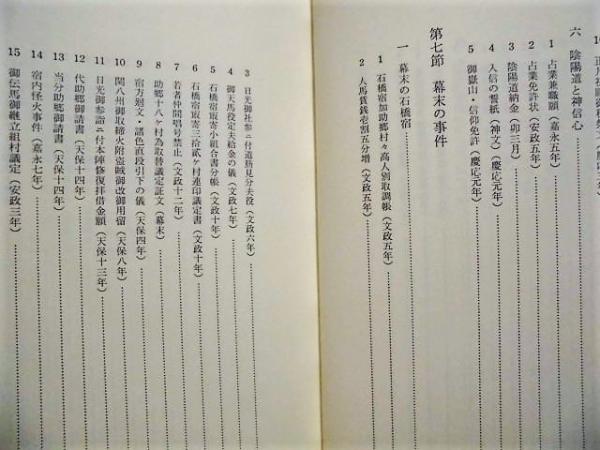 六 陰陽道と神信心
1 占業兼職願（嘉永五年）
2 占業免許状（安政五年）
3 陰陽道納金（卯三月）
4 入信の誓紙（神文）（慶応元年）
5 御嶽山・信仰免許（慶応元年）
第七節 幕末の事件
一 幕末の石橋宿
1 石橋宿加助郷村々高人別取調帳（文政五年）
2 人馬賃銭壱割五分増（文政五年）
3 日光御社参ニ付道筋見分夫役（文政六年）
4 御天馬役定夫給金の儀（文政七年）
5 石橋宿取寄小組合書分帳（文政十年）
6 石橋宿取寄三拾弐ケ村連印議定書（文政十年）
7 若者仲間唱号禁止（文政十二年）
8 助郷十八ケ村為取替議定証文（幕末）
9 宿方廻文・諸色直段引下の儀（天保四年）
10 関八州御取締火附盗賊御改御用留（天保八年）
11 日光御参詣ニ付本陣修復拝借金願（天保十三年）
12 代助郷御請書（天保十四年）
13 当分助郷御請書（天保十四年）
14 宿内怪火事件（嘉永七年）
15 御伝馬御継立組村議定（安政三年）